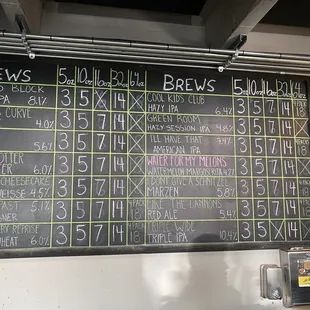 EWS 5oz 10oz 16oz 32oz 64oz BREWS 5oz 10oz 16oz 32oz
BLOCK COOL KIDS CLUB
IPA 8.1% 3 5 14 HAZY IPA 6.4% 3 5 7 14
CURVE GREEN ROOM
4.0% 3 5 7 14 HAZY SESSION IPA 4.8% 3 5 7 14
I'LL HAVE THAT
5.6% 3 5 7 14 AMERICAN IPA 3 5 7 14
OTTER WATER FOR MY MELONS
TER 5.8% 3 5 7 14 3 5 7 14
CHEESECAKE DON'T GIVE A SCHNITZEL
WEISSE 4.5% 3 5 7 14 MARZEN 5.8% 3 5 7 14
FAST LIKE THE CANNONS
5.0% 3 5 7 14 RED ALE 5.4% 3 5 7 14
REPRISE WIDE
WHEAT 6.0% 3 5 7 14 TRIPLE IPA 10.4% 3 5 14